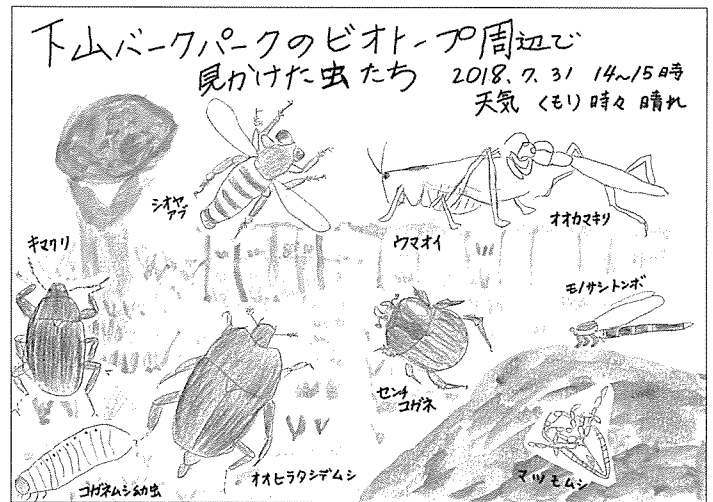 下山バークパークのビオトープ周辺で
見かけた虫たち 2018.7.31 14~15時
天気 くもり時々晴れ
シオヤ
アブ
ウマオイ
オオカマキリ
キマワリ
モノサシトンボ
センチ
コガネ
コガネムシ幼虫
オオヒラタシデムシ
マツモムシ